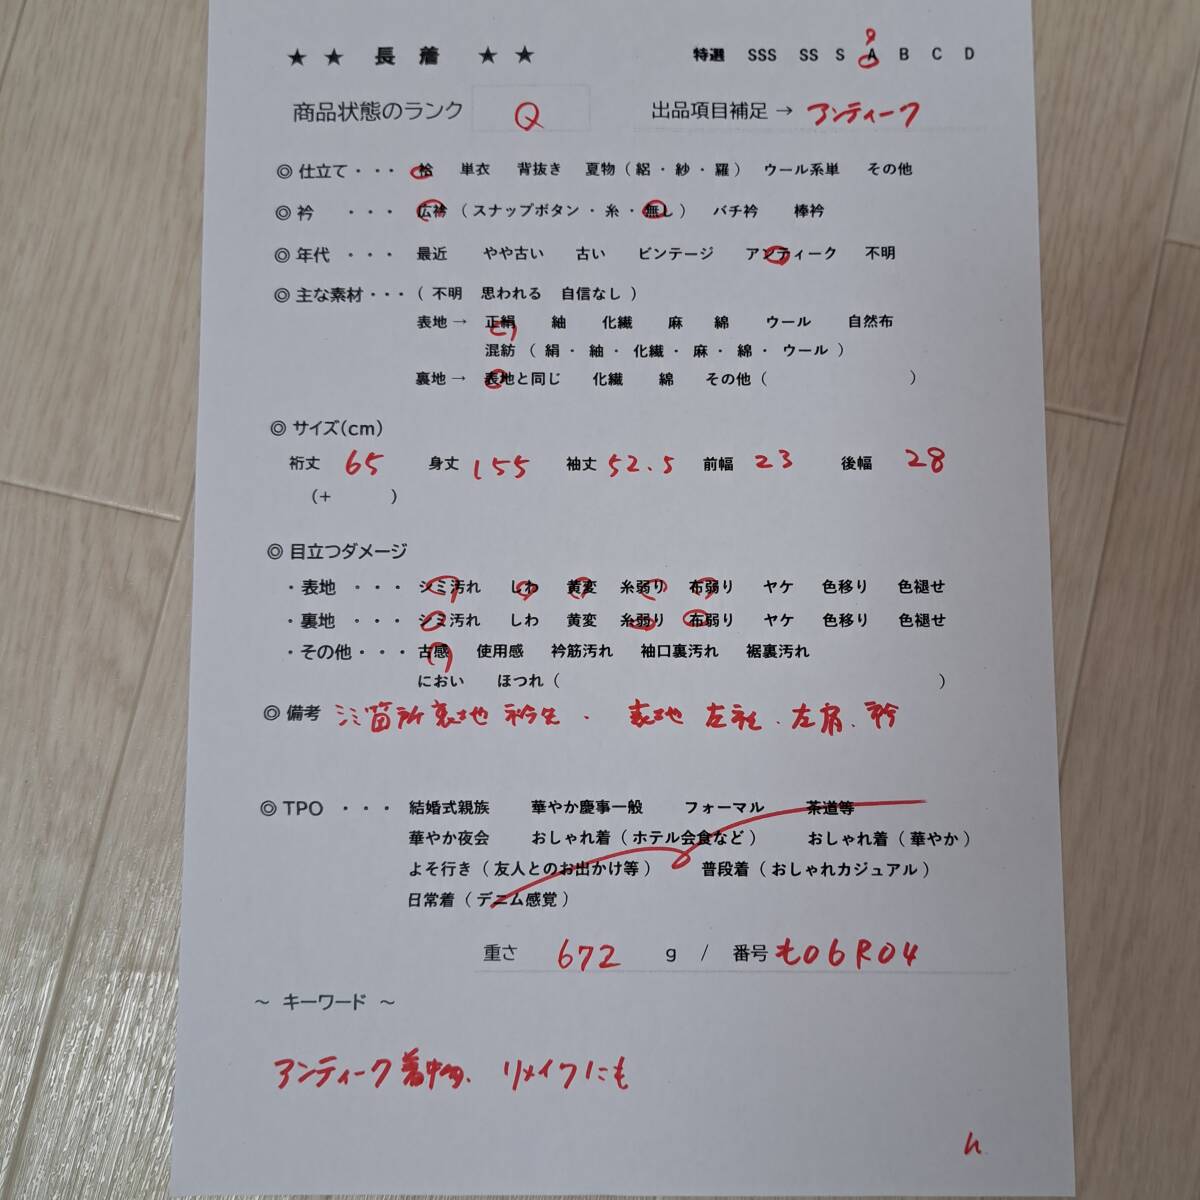 ★ ★ 長 着 ★ ★ 特選 SSS SS S A B C D
商品状態のランク Q 出品項目補足 → アンティーク
◎ 仕立て ・・・ 袷 単衣 背抜き 夏物 ( 絽 ・ 紗 ・ 羅 ) ウール系単 その他
◎ 衿 ・・・ 広衿 ( スナップボタン ・ 糸 ・ 無し ) バチ衿 棒衿
◎ 年代 ・・・ 最近 やや古い 古い ビンテージ アンティーク 不明
◎ 主な素材 ・・・ ( 不明 思われる 自信なし )
表地 → 正絹 紬 化繊 麻 綿 ウール 自然布
混紡 ( 絹 ・ 紬 ・ 化繊 ・ 麻 ・ 綿 ・ ウール )
裏地 → 表地と同じ 化繊 綿 その他 ( )
◎ サイズ(cm)
裄丈 65 身丈 155 袖丈 52.5 前幅 23 後幅 28
(+ )
◎ 目立つダメージ
・表地 ・・・ シミ汚れ しわ 黄変 糸弱り 布弱り ヤケ 色移り 色褪せ
・裏地 ・・・ シミ汚れ しわ 黄変 糸弱り 布弱り ヤケ 色移り 色褪せ
・その他 ・・・ 古感 使用感 衿筋汚れ 袖口裏汚れ 裾裏汚れ
におい ほつれ ( )
◎ 備考 シミ箇所 裏地 衿先 . 表地 左袖 . 左肩 . 衿
◎ TPO ・・・ 結婚式親族 華やか慶事一般 フォーマル 茶道等
華やか夜会 おしゃれ着 ( ホテル会食など ) おしゃれ着 ( 華やか )
よそ行き ( 友人とのお出かけ等 ) 普段着 ( おしゃれカジュアル )
日常着 ( デニム感覚 )
重さ 672 g / 番号 も06R04
～ キーワード ～
アンティーク着物、リメイクにも